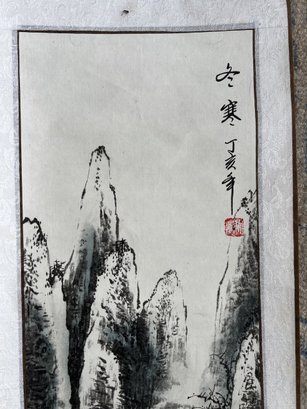 冬寒丁亥年